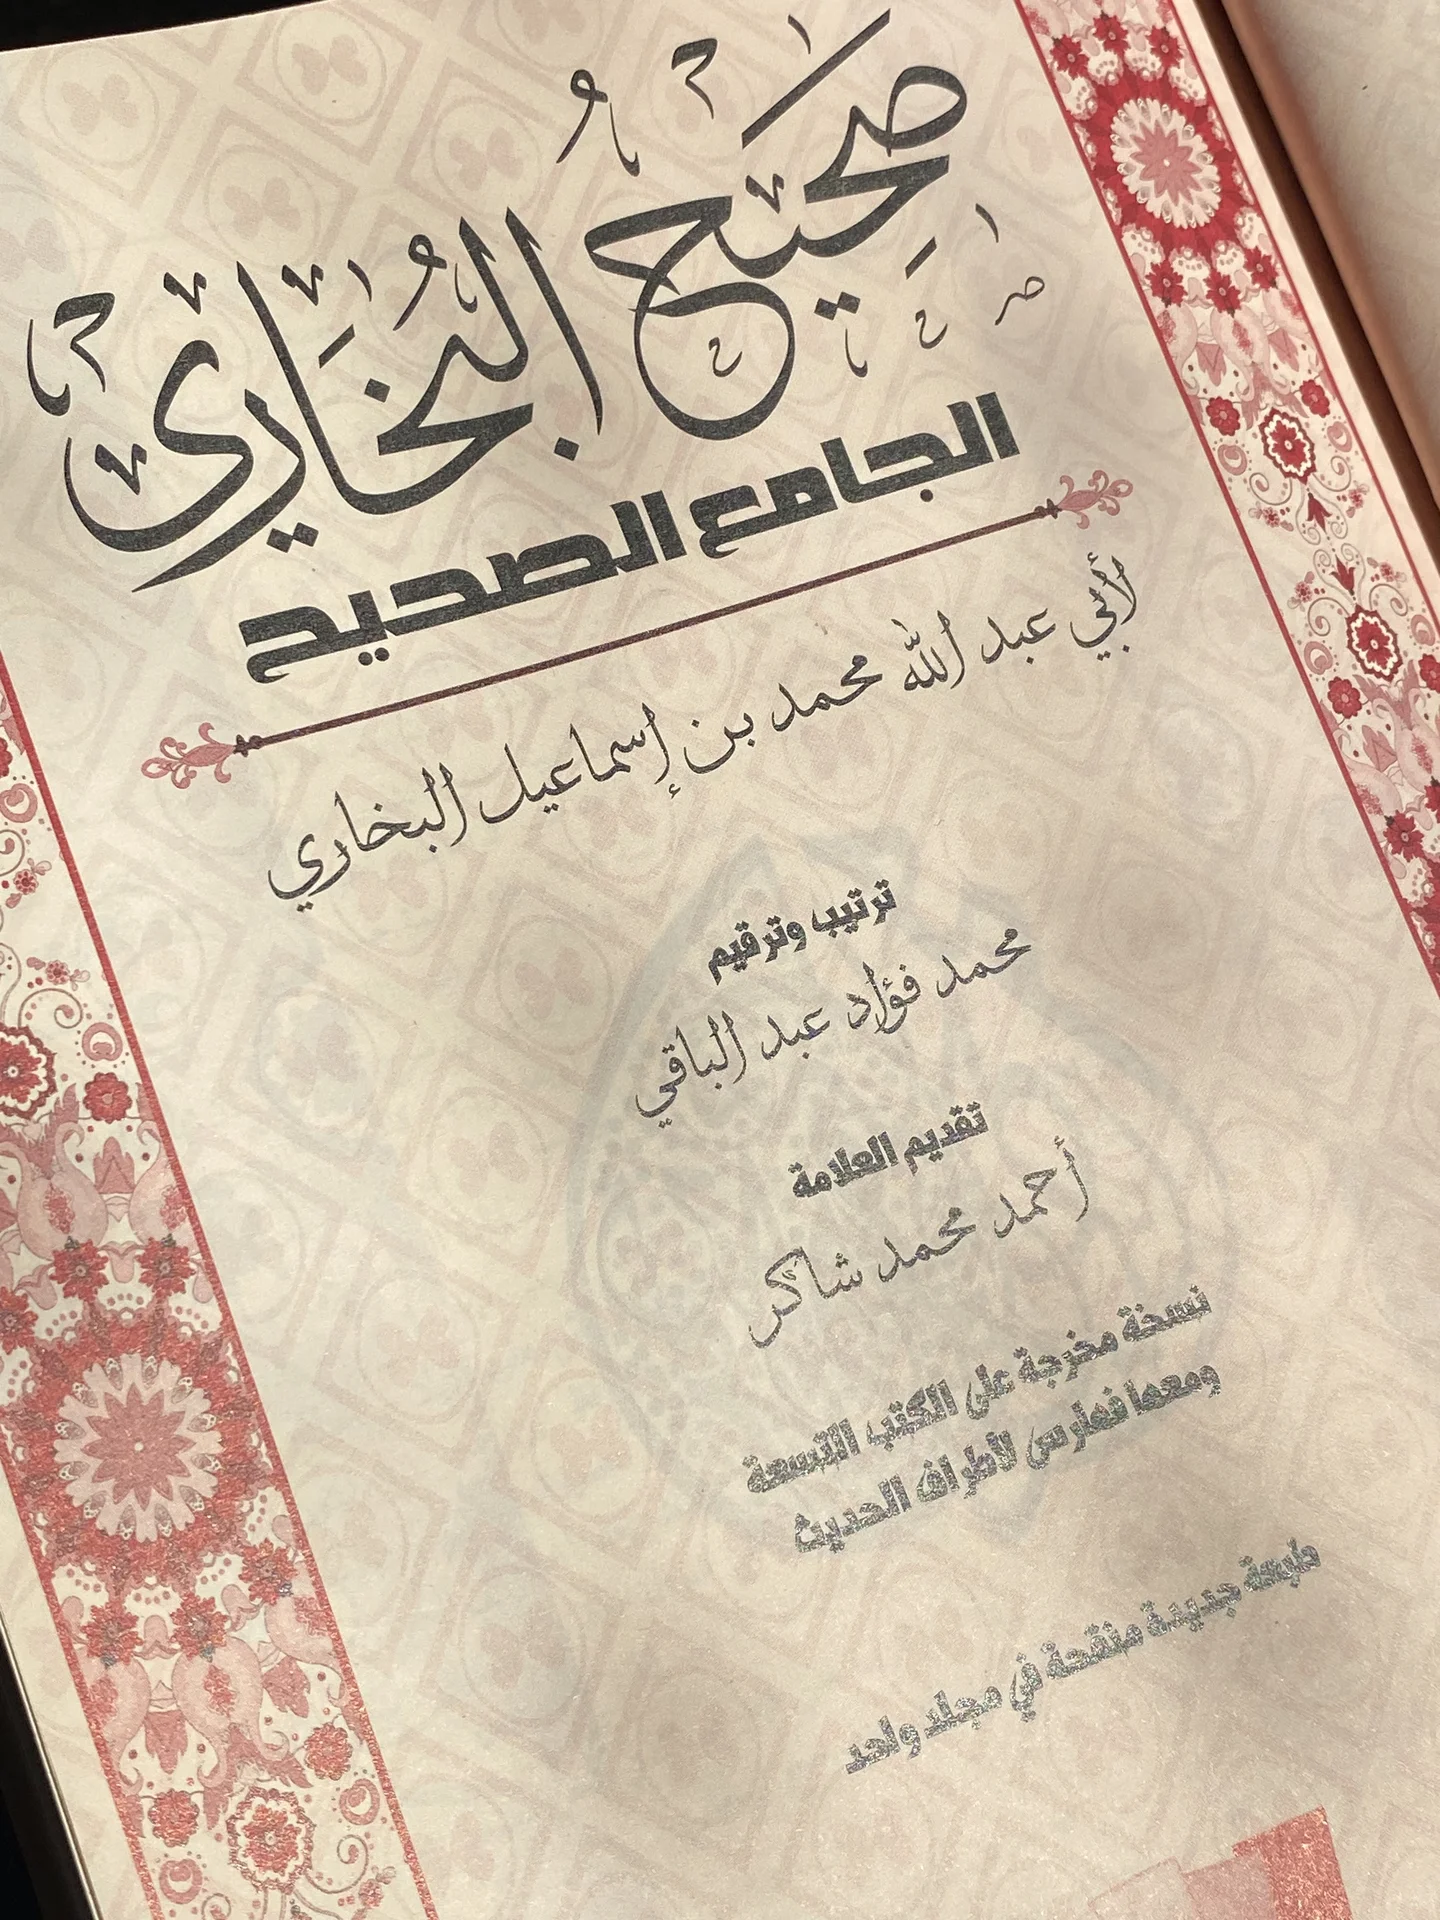 صَحِيحُ البُخَارِيّ
الجامع الصحيح
لأبي عبد الله محمد بن إسماعيل البخاري
ترتيب وترقيم
محمد فؤاد عبد الباقي
تقديم العلامة
أحمد محمد شاكر
نسخة مخرجة على الكتب التسعة
ومعها فهارس لأطراف الحديث
طبعة جديدة منقحة في مجلد واحد